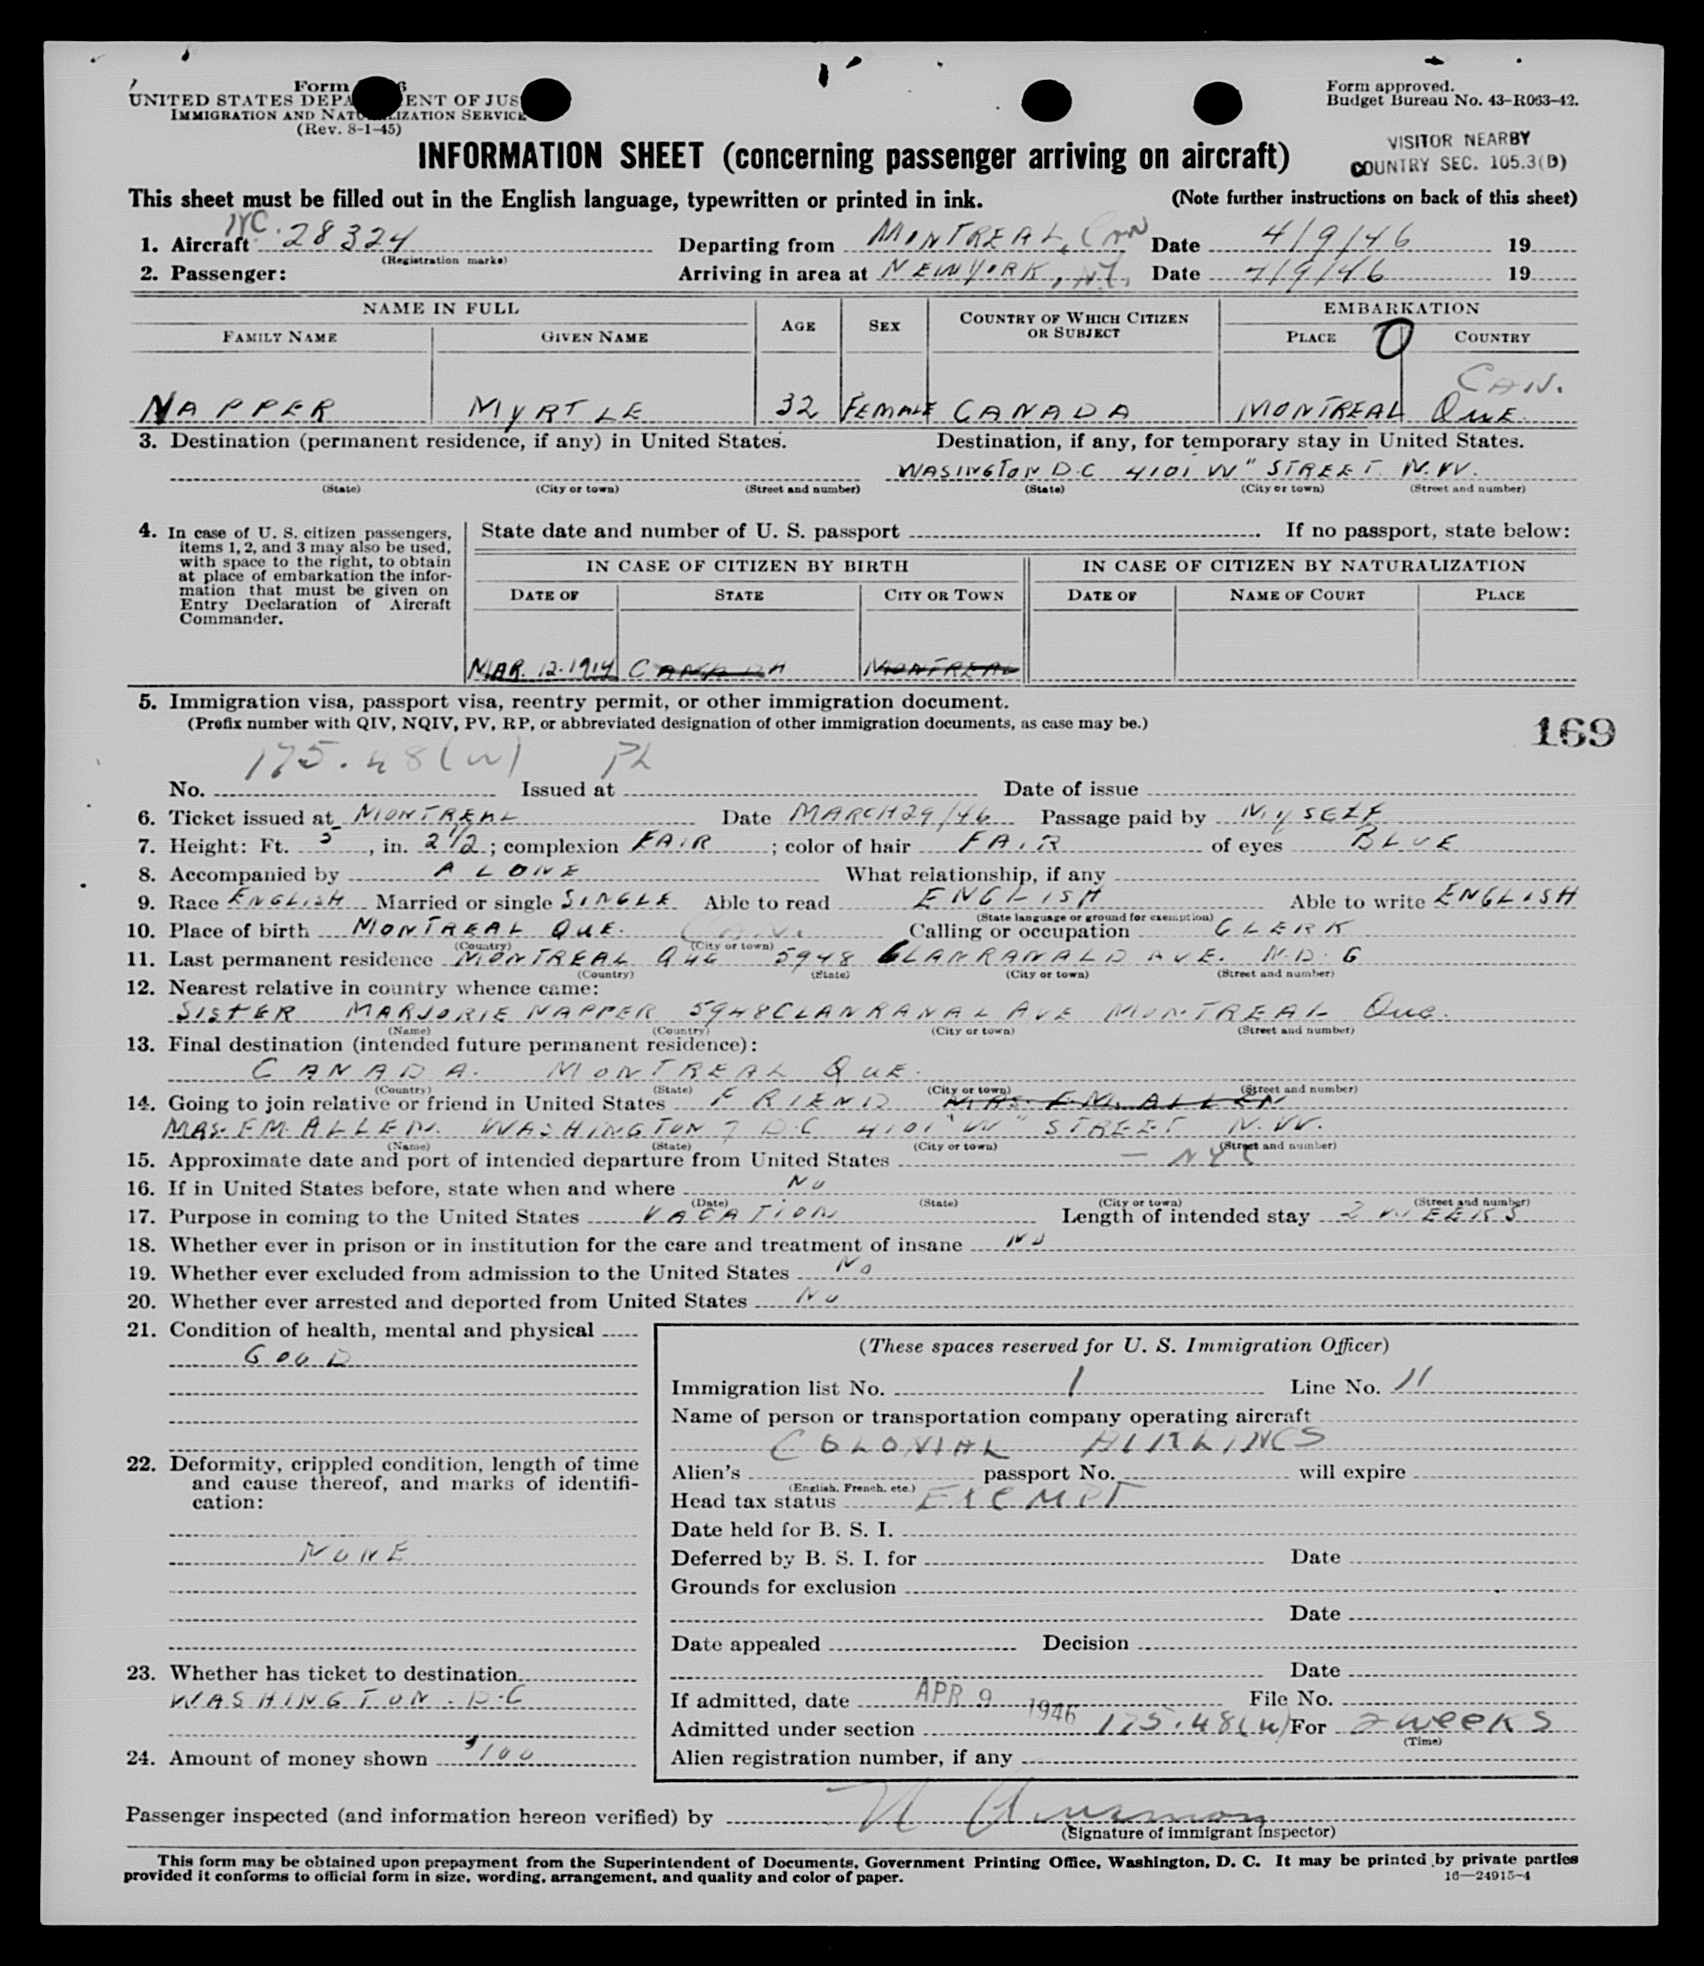 Form
UNITED STATES DEPA ENT OF JUS
IMMIGRATION AND NATU IZATION SERVICE
(Rev. 8-1-45)
Form approved.
Budget Bureau No. 43-R063-42.
VISITOR NEARBY
COUNTRY SEC. 105.3(B)
INFORMATION SHEET (concerning passenger arriving on aircraft)
This sheet must be filled out in the English language, typewritten or printed in ink. (Note further instructions on back of this sheet)
1. Aircraft NC. 28324 Departing from MONTREAL, CAN Date 4/9/46 19
(Registration marks)
2. Passenger: Arriving in area at NEW YORK, N.Y. Date 4/9/46 19
NAME IN FULL AGE SEX COUNTRY OF WHICH CITIZEN OR SUBJECT EMBARKATION
FAMILY NAME GIVEN NAME PLACE O COUNTRY
CAN.
NAPPER MYRTLE 32 FEMALE CANADA MONTREAL QUE.
3. Destination (permanent residence, if any) in United States. Destination, if any, for temporary stay in United States.
WASINGTON D.C 4101 W" STREET. N.W.
(State) (City or town) (Street and number) (State) (City or town) (Street and number)
4. In case of U. S. citizen passengers, items 1, 2, and 3 may also be used, with space to the right, to obtain at place of embarkation the information that must be given on Entry Declaration of Aircraft Commander.
State date and number of U. S. passport If no passport, state below:
IN CASE OF CITIZEN BY BIRTH IN CASE OF CITIZEN BY NATURALIZATION
DATE OF STATE CITY OR TOWN DATE OF NAME OF COURT PLACE
MAR. 12. 1914 CANADA MONTREAL
5. Immigration visa, passport visa, reentry permit, or other immigration document.
(Prefix number with QIV, NQIV, PV, RP, or abbreviated designation of other immigration documents, as case may be.)
169
175.48(w) PL
No. Issued at Date of issue
6. Ticket issued at MONTREAL Date MARCH 29/46 Passage paid by MYSELF
7. Height: Ft. 5, in. 2 1/2; complexion FAIR; color of hair FAIR of eyes BLUE
8. Accompanied by ALONE What relationship, if any
9. Race ENGLISH Married or single SINGLE Able to read ENGLISH Able to write ENGLISH
(State language or ground for exemption)
10. Place of birth MONTREAL QUE. CAN. Calling or occupation CLERK
(Country) (City or town)
11. Last permanent residence MONTREAL QUE 5948 CLANRANALD AVE. N.D.G
(Country) (State) (City or town) (Street and number)
12. Nearest relative in country whence came:
SISTER MARJORIE NAPPER 5948 CLANRANAL AVE MONTREAL Que.
(Name) (Country) (City or town) (Street and number)
13. Final destination (intended future permanent residence):
CANADA. MONTREAL QUE.
(Country) (State) (City or town) (Street and number)
14. Going to join relative or friend in United States FRIEND MRS. F.M. ALLEN
MRS. F.M. ALLEN. WASHINGTON 7 D.C 4101 "W" STREET N.W.
(Name) (State) (City or town) (Street and number)
15. Approximate date and port of intended departure from United States — NYC
16. If in United States before, state when and where NO
(Date) (State) (City or town) (Street and number)
17. Purpose in coming to the United States VACATION Length of intended stay 2 WEEKS
18. Whether ever in prison or in institution for the care and treatment of insane NO
19. Whether ever excluded from admission to the United States NO
20. Whether ever arrested and deported from United States NO
21. Condition of health, mental and physical
GOOD
22. Deformity, crippled condition, length of time and cause thereof, and marks of identification:
NONE
23. Whether has ticket to destination
WASHINGTON. D.C
24. Amount of money shown $100
(These spaces reserved for U. S. Immigration Officer)
Immigration list No. 1 Line No. 11
Name of person or transportation company operating aircraft
COLONIAL AIRLINES
Alien's passport No. will expire
(English, French, etc.)
Head tax status EXEMPT
Date held for B. S. I.
Deferred by B. S. I. for Date
Grounds for exclusion
Date
Date appealed Decision
Date
If admitted, date APR 9 1946 File No.
Admitted under section 175.48(w) For 2 weeks
(Time)
Alien registration number, if any
Passenger inspected (and information hereon verified) by
(Signature of immigrant inspector)
This form may be obtained upon prepayment from the Superintendent of Documents, Government Printing Office, Washington, D. C. It may be printed by private parties
provided it conforms to official form in size, wording, arrangement, and quality and color of paper. 16—24915-4